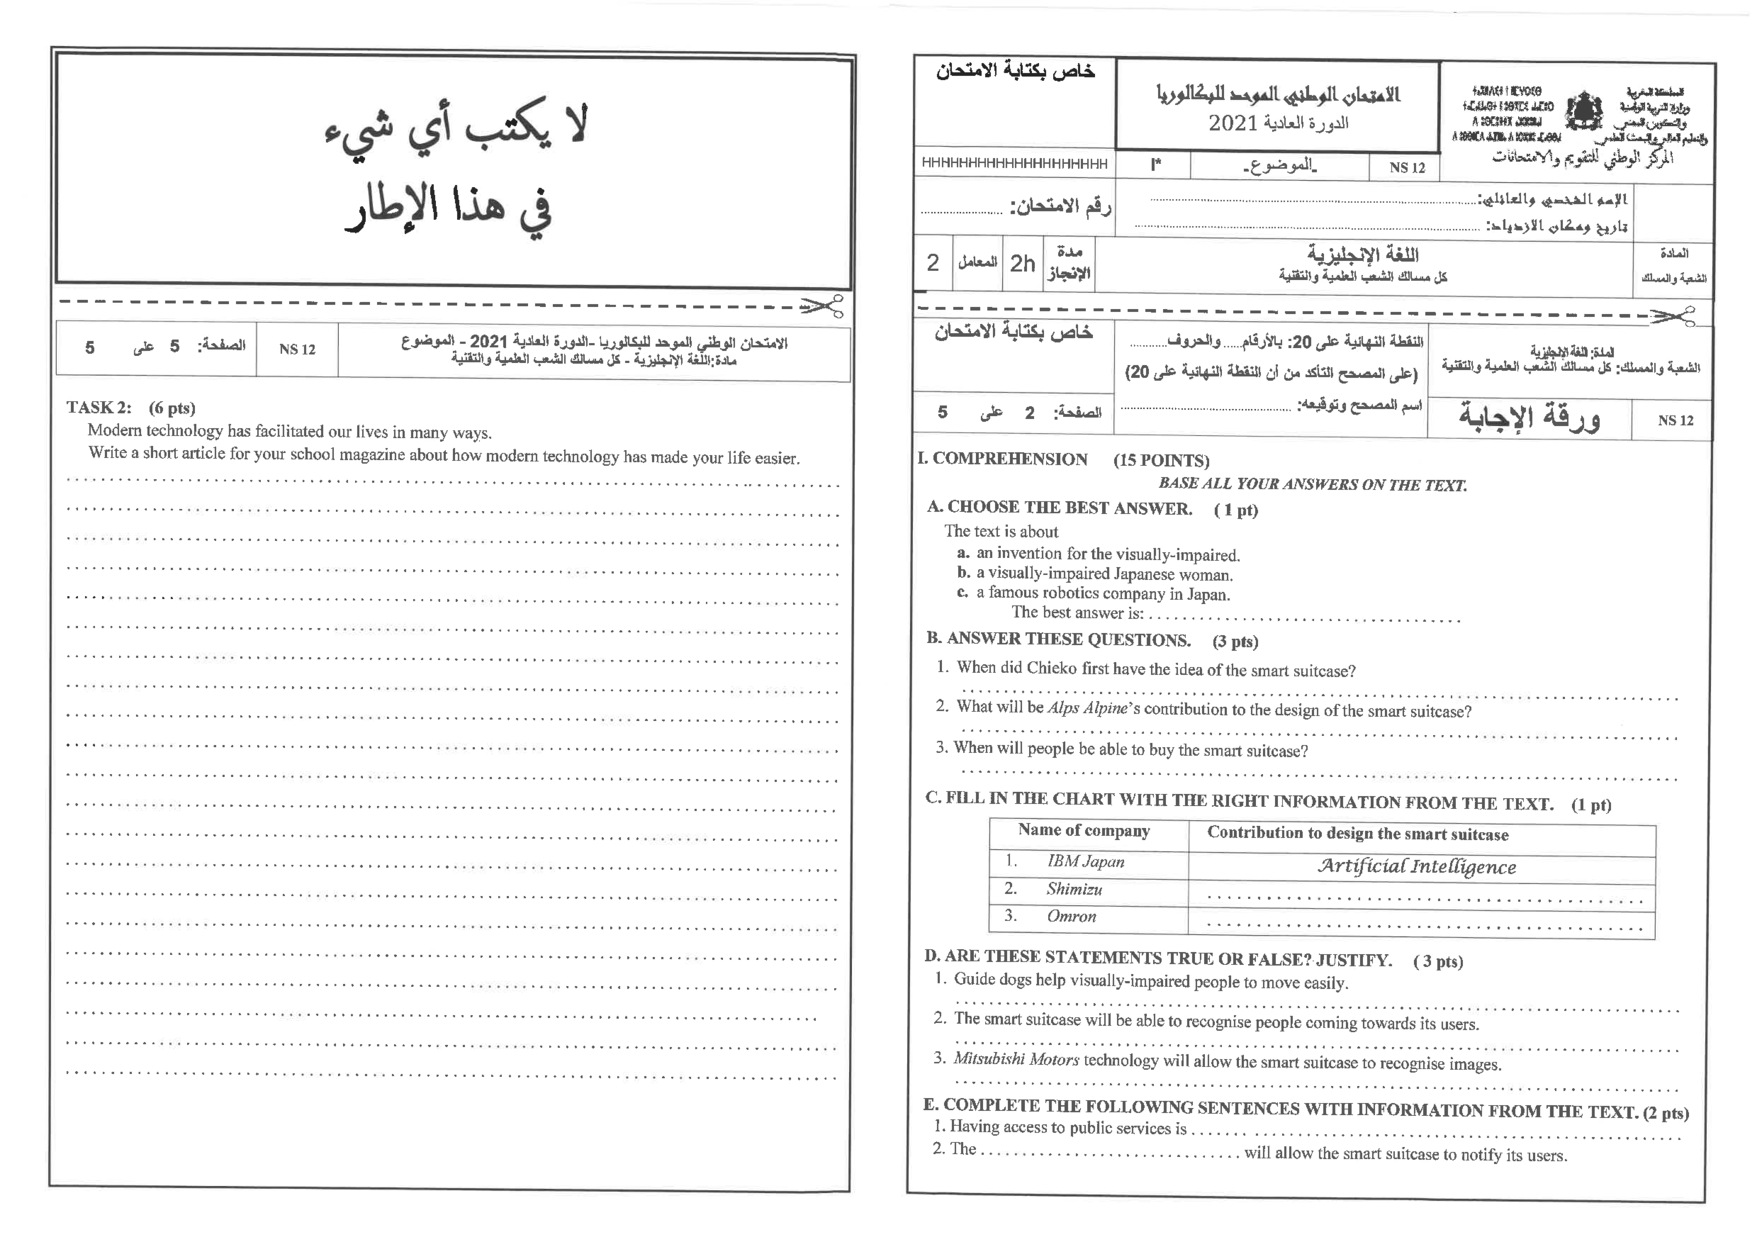 لا يكتب أي شيء
في هذا الإطار
الصفحة: 5 على 5
NS 12
الامتحان الوطني الموحد للبكالوريا -الدورة العادية 2021 - الموضوع
مادة:اللغة الإنجليزية - كل مسالك الشعب العلمية والتقنية
TASK 2: (6 pts)
Modern technology has facilitated our lives in many ways.
Write a short article for your school magazine about how modern technology has made your life easier.
خاص بكتابة الامتحان
الامتحان الوطني الموحد للبكالوريا
الدورة العادية 2021
المملكة المغربية
وزارة التربية الوطنية
والتكوين المهني
والتعليم العالي والبحث العلمي
المركز الوطني للتقويم والامتحانات
HHHHHHHHHHHHHHHHHHHH
I*
-الموضوع-
NS 12
الإسم الشخصي والعائلي:
تاريخ ومكان الازدياد:
رقم الامتحان:
المادة
اللغة الإنجليزية
مدة الإنجاز
2h
المعامل
2
الشعبة والمسلك
كل مسالك الشعب العلمية والتقنية
خاص بكتابة الامتحان
النقطة النهائية على 20: بالأرقام..... والحروف..........
(على المصحح التأكد من أن النقطة النهائية على 20)
المادة: اللغة الإنجليزية
الشعبة والمسلك: كل مسالك الشعب العلمية والتقنية
الصفحة: 2 على 5
اسم المصحح وتوقيعه:
ورقة الإجابة
NS 12
I. COMPREHENSION (15 POINTS)
BASE ALL YOUR ANSWERS ON THE TEXT.
A. CHOOSE THE BEST ANSWER. ( 1 pt)
The text is about
a. an invention for the visually-impaired.
b. a visually-impaired Japanese woman.
c. a famous robotics company in Japan.
The best answer is:
B. ANSWER THESE QUESTIONS. (3 pts)
1. When did Chieko first have the idea of the smart suitcase?
2. What will be Alps Alpine's contribution to the design of the smart suitcase?
3. When will people be able to buy the smart suitcase?
C. FILL IN THE CHART WITH THE RIGHT INFORMATION FROM THE TEXT. (1 pt)
Name of company Contribution to design the smart suitcase
1. IBM Japan Artificial Intelligence
2. Shimizu
3. Omron
D. ARE THESE STATEMENTS TRUE OR FALSE? JUSTIFY. ( 3 pts)
1. Guide dogs help visually-impaired people to move easily.
2. The smart suitcase will be able to recognise people coming towards its users.
3. Mitsubishi Motors technology will allow the smart suitcase to recognise images.
E. COMPLETE THE FOLLOWING SENTENCES WITH INFORMATION FROM THE TEXT. (2 pts)
1. Having access to public services is
2. The ............................... will allow the smart suitcase to notify its users.